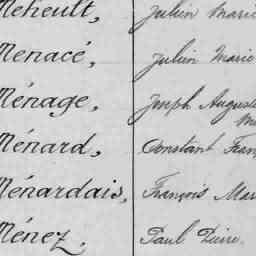 Meheult, Julien Marie
Menacé, Julien Marie
Ménage, Joseph Auguste
Ménard, Constant Fran
Ménardais, François Mar
Ménez, Paul Pierre.